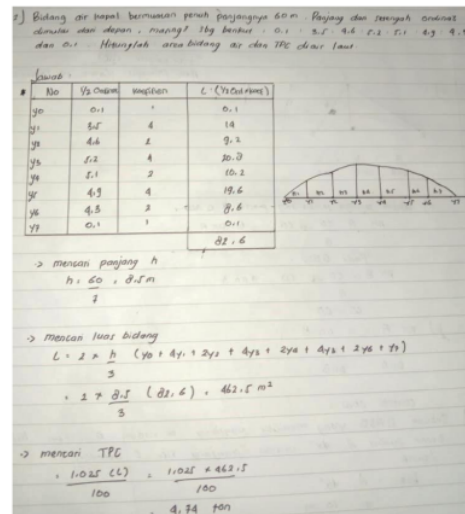 2) Bidang air kapal bermuatan penuh panjangnya 60 m. Panjang dan setengah ordinat
dimulai dari depan, masing² sbg berikut : 0.1 ; 3.5 4.6 5.2 5.1 4.9 4.
dan 0.1. Hitunglah area bidang air dan TPC diair laut.
Jawab :
No ½ Ordinat Koefisien L (½ Ordinat)
y0 0.1 1 0.1
y1 3.5 4 14
y2 4.6 2 9.2
y3 5.2 4 20.8
y4 5.1 2 10.2
y5 4.9 4 19.6
y6 4.3 2 8.6
y7 0.1 1 0.1
82.6
y0 y1 y2 y3 y4 y5 y6 y7
-> mencari panjang h
h = 60 = 8.5 m
7
-> mencari luas bidang
L = 2 × h (y0 + 4y1 + 2y2 + 4y3 + 2y4 + 4y5 + 2y6 + y7)
3
= 2 × 8.5 (82.6) = 462.5 m²
3
-> mencari TPC
= 1.025 (L) = 1.025 × 462.5
100 100
4.74 ton